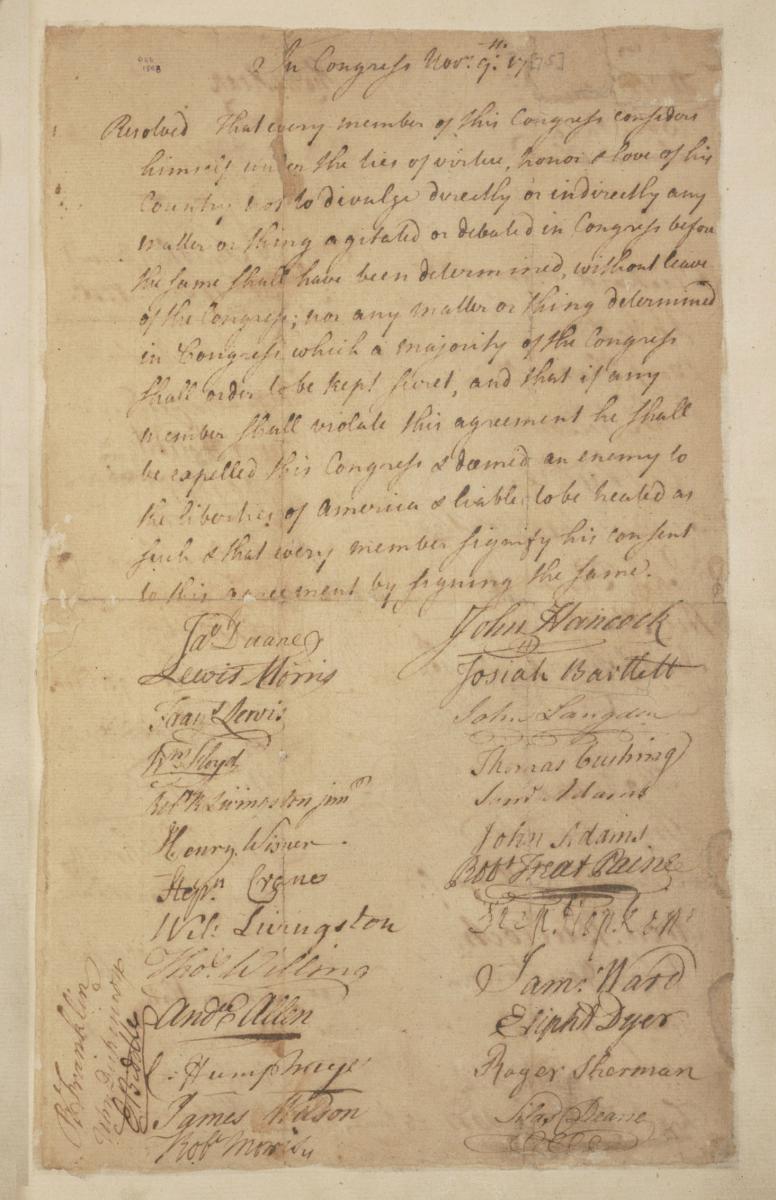 In Congress Novr. 9th. 17[75]
Resolved That every member of this Congress considers
himself under the ties of virtue, honor & love of his
Country not to divulge directly or indirectly any
matter or thing agitated or debated in Congress before
the same shall have been determined, without leave
of the Congress; nor any matter or thing determined
in Congress which a majority of the Congress
shall order to be kept secret, and that if any
member shall violate this agreement he shall
be expelled this Congress & deemed an enemy to
the liberties of America & liable to be treated as
such & that every member signify his consent
to this agreement by signing the same.
Jas Duane
Lewis Morris
Frans Lewis
Wm Floyd
Robt R Livingston junr
Henry Wisner
Stepn Crane
Wil: Livingston
Thos. Willing
Andw Allen
C: Humphreys
James Wilson
Robt Morris
John Hancock
Josiah Bartlett
John Langdon
Thomas Cushing
Saml Adams
John Adams
Robt Treat Paine
Step. Hopkins
Saml Ward
Eliphl Dyer
Roger Sherman
Silas Deane
B Franklin
John Dickinson
E Biddle